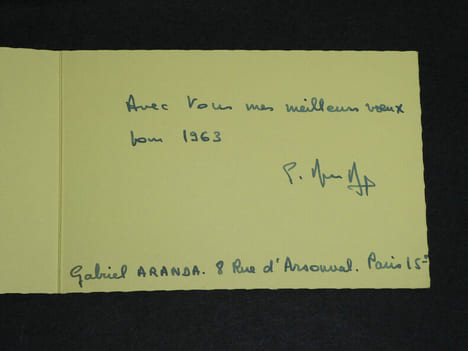 Avec tous mes meilleurs vœux
pour 1963
Gabriel ARANDA. 8 Rue d'Arsonval. Paris 15e